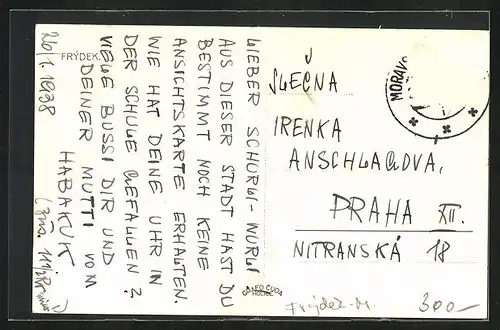 FRÝDEK.
26/1. 1938
LIEBER SCHURLI-NURLI
AUS DIESER STADT HAST DU
BESTIMMT NOCH KEINE
ANSICHTSKARTE ERHALTEN.
WIE HAT DEINE UHR IN
DER SCHULE GEFALLEN?
VIELE BUSSI DIR UND
DEINER MUTTI VOM
HABAKUK
SLEČNA
IRENKA
ANSCHLAGOVA,
PRAHA XII.
NITRANSKÁ 18
MORAV
Frýdek-M.
300-